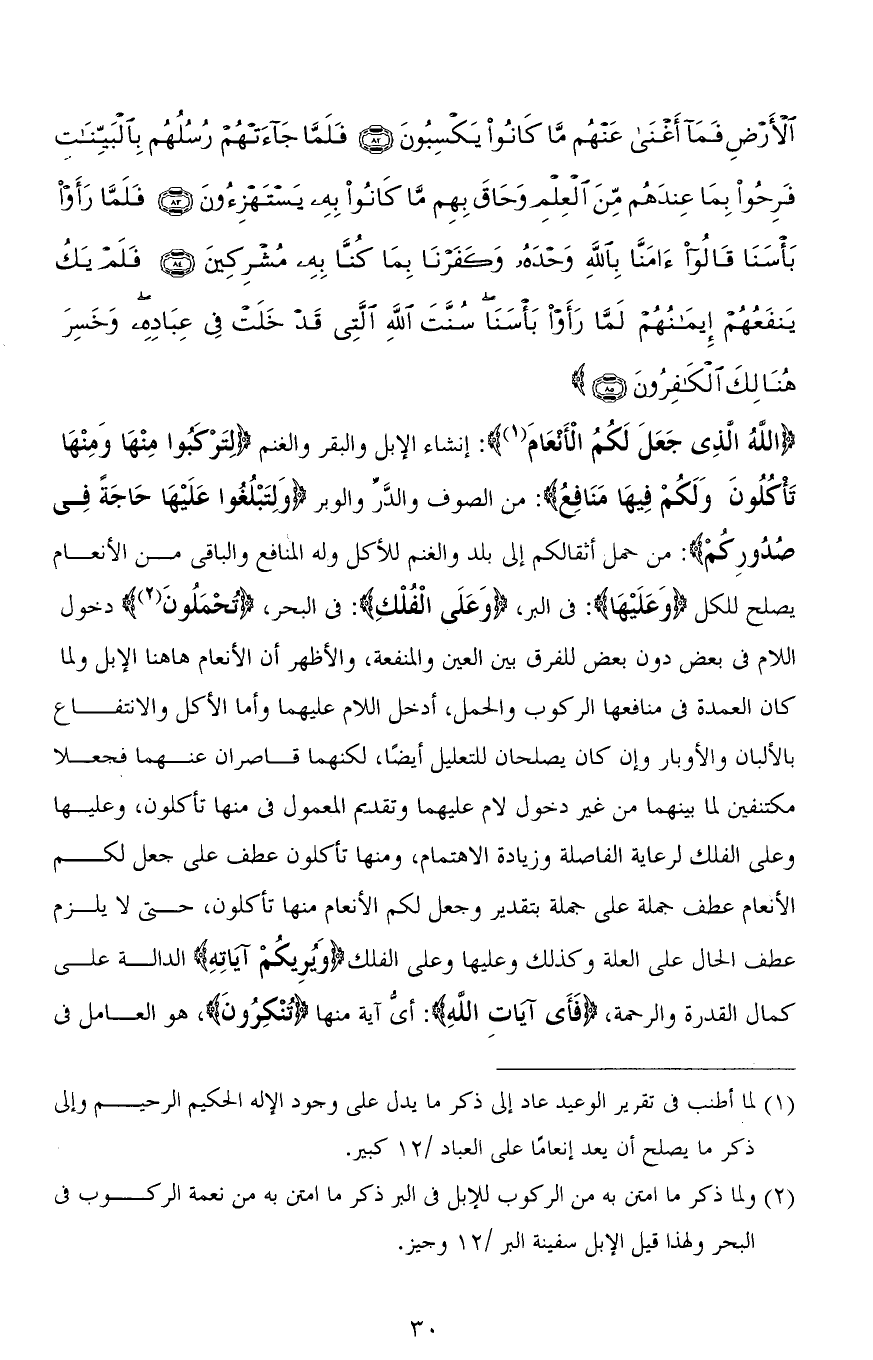 ٱلْأَرْضِ فَمَآ أَغْنَىٰ عَنْهُم مَّا كَانُوا۟ يَكْسِبُونَ ٨٢ فَلَمَّا جَآءَتْهُمْ رُسُلُهُم بِٱلْبَيِّنَٰتِ
فَرِحُوا۟ بِمَا عِندَهُم مِّنَ ٱلْعِلْمِ وَحَاقَ بِهِم مَّا كَانُوا۟ بِهِۦ يَسْتَهْزِءُونَ ٨٣ فَلَمَّا رَأَوْا۟
بَأْسَنَا قَالُوٓا۟ ءَامَنَّا بِٱللَّهِ وَحْدَهُۥ وَكَفَرْنَا بِمَا كُنَّا بِهِۦ مُشْرِكِينَ ٨٤ فَلَمْ يَكُ
يَنفَعُهُمْ إِيمَٰنُهُمْ لَمَّا رَأَوْا۟ بَأْسَنَا ۖ سُنَّتَ ٱللَّهِ ٱلَّتِى قَدْ خَلَتْ فِى عِبَادِهِۦ ۖ وَخَسِرَ
هُنَالِكَ ٱلْكَٰفِرُونَ ٨٥ ﴾
﴿اللَّهُ الَّذِى جَعَلَ لَكُمُ الْأَنْعَامَ(١)﴾: إنشاء الإبل والبقر والغنم ﴿لِتَرْكَبُوا مِنْهَا وَمِنْهَا
تَأْكُلُونَ وَلَكُمْ فِيهَا مَنَافِعُ﴾: من الصوف والدَّرِّ والوبر ﴿وَلِتَبْلُغُوا عَلَيْهَا حَاجَةً فِى
صُدُورِكُمْ﴾: من حمل أثقالكم إلى بلد والغنم للأكل وله المنافع والباقى من الأنعام
يصلح للكل ﴿وَعَلَيْهَا﴾: فى البر، ﴿وَعَلَى الْفُلْكِ﴾: فى البحر، ﴿تُحْمَلُونَ(٢)﴾ دخول
اللام فى بعض دون بعض للفرق بين العين والمنفعة، والأظهر أن الأنعام هاهنا الإبل ولما
كان العمدة فى منافعها الركوب والحمل، أدخل اللام عليهما وأما الأكل والانتفاع
بالألبان والأوبار وإن كان يصلحان للتعليل أيضًا، لكنهما قاصران عنهما فجعلا
مكتنفين لما بينهما من غير دخول لام عليهما وتقديم المعمول فى منها تأكلون، وعليها
وعلى الفلك لرعاية الفاصلة وزيادة الاهتمام، ومنها تأكلون عطف على جعل لكم
الأنعام عطف جملة على جملة بتقدير وجعل لكم الأنعام منها تأكلون، حتى لا يلزم
عطف الحال على العلة وكذلك وعليها وعلى الفلك ﴿وَيُرِيكُمْ آيَاتِهِ﴾ الدالة على
كمال القدرة والرحمة، ﴿فَأَى آيَاتِ اللَّهِ﴾: أىُّ آية منها ﴿تُنْكِرُونَ﴾، هو العامل فى
(١) لما أطنب فى تقرير الوعيد عاد إلى ذكر ما يدل على وجود الإله الحكيم الرحيم وإلى
ذكر ما يصلح أن يعد إنعامًا على العباد /١٢ كبير.
(٢) ولما ذكر ما امتن به من الركوب للإبل فى البر ذكر ما امتن به من نعمة الركوب فى
البحر ولهذا قيل الإبل سفينة البر /١٢ وجيز.
٣٠